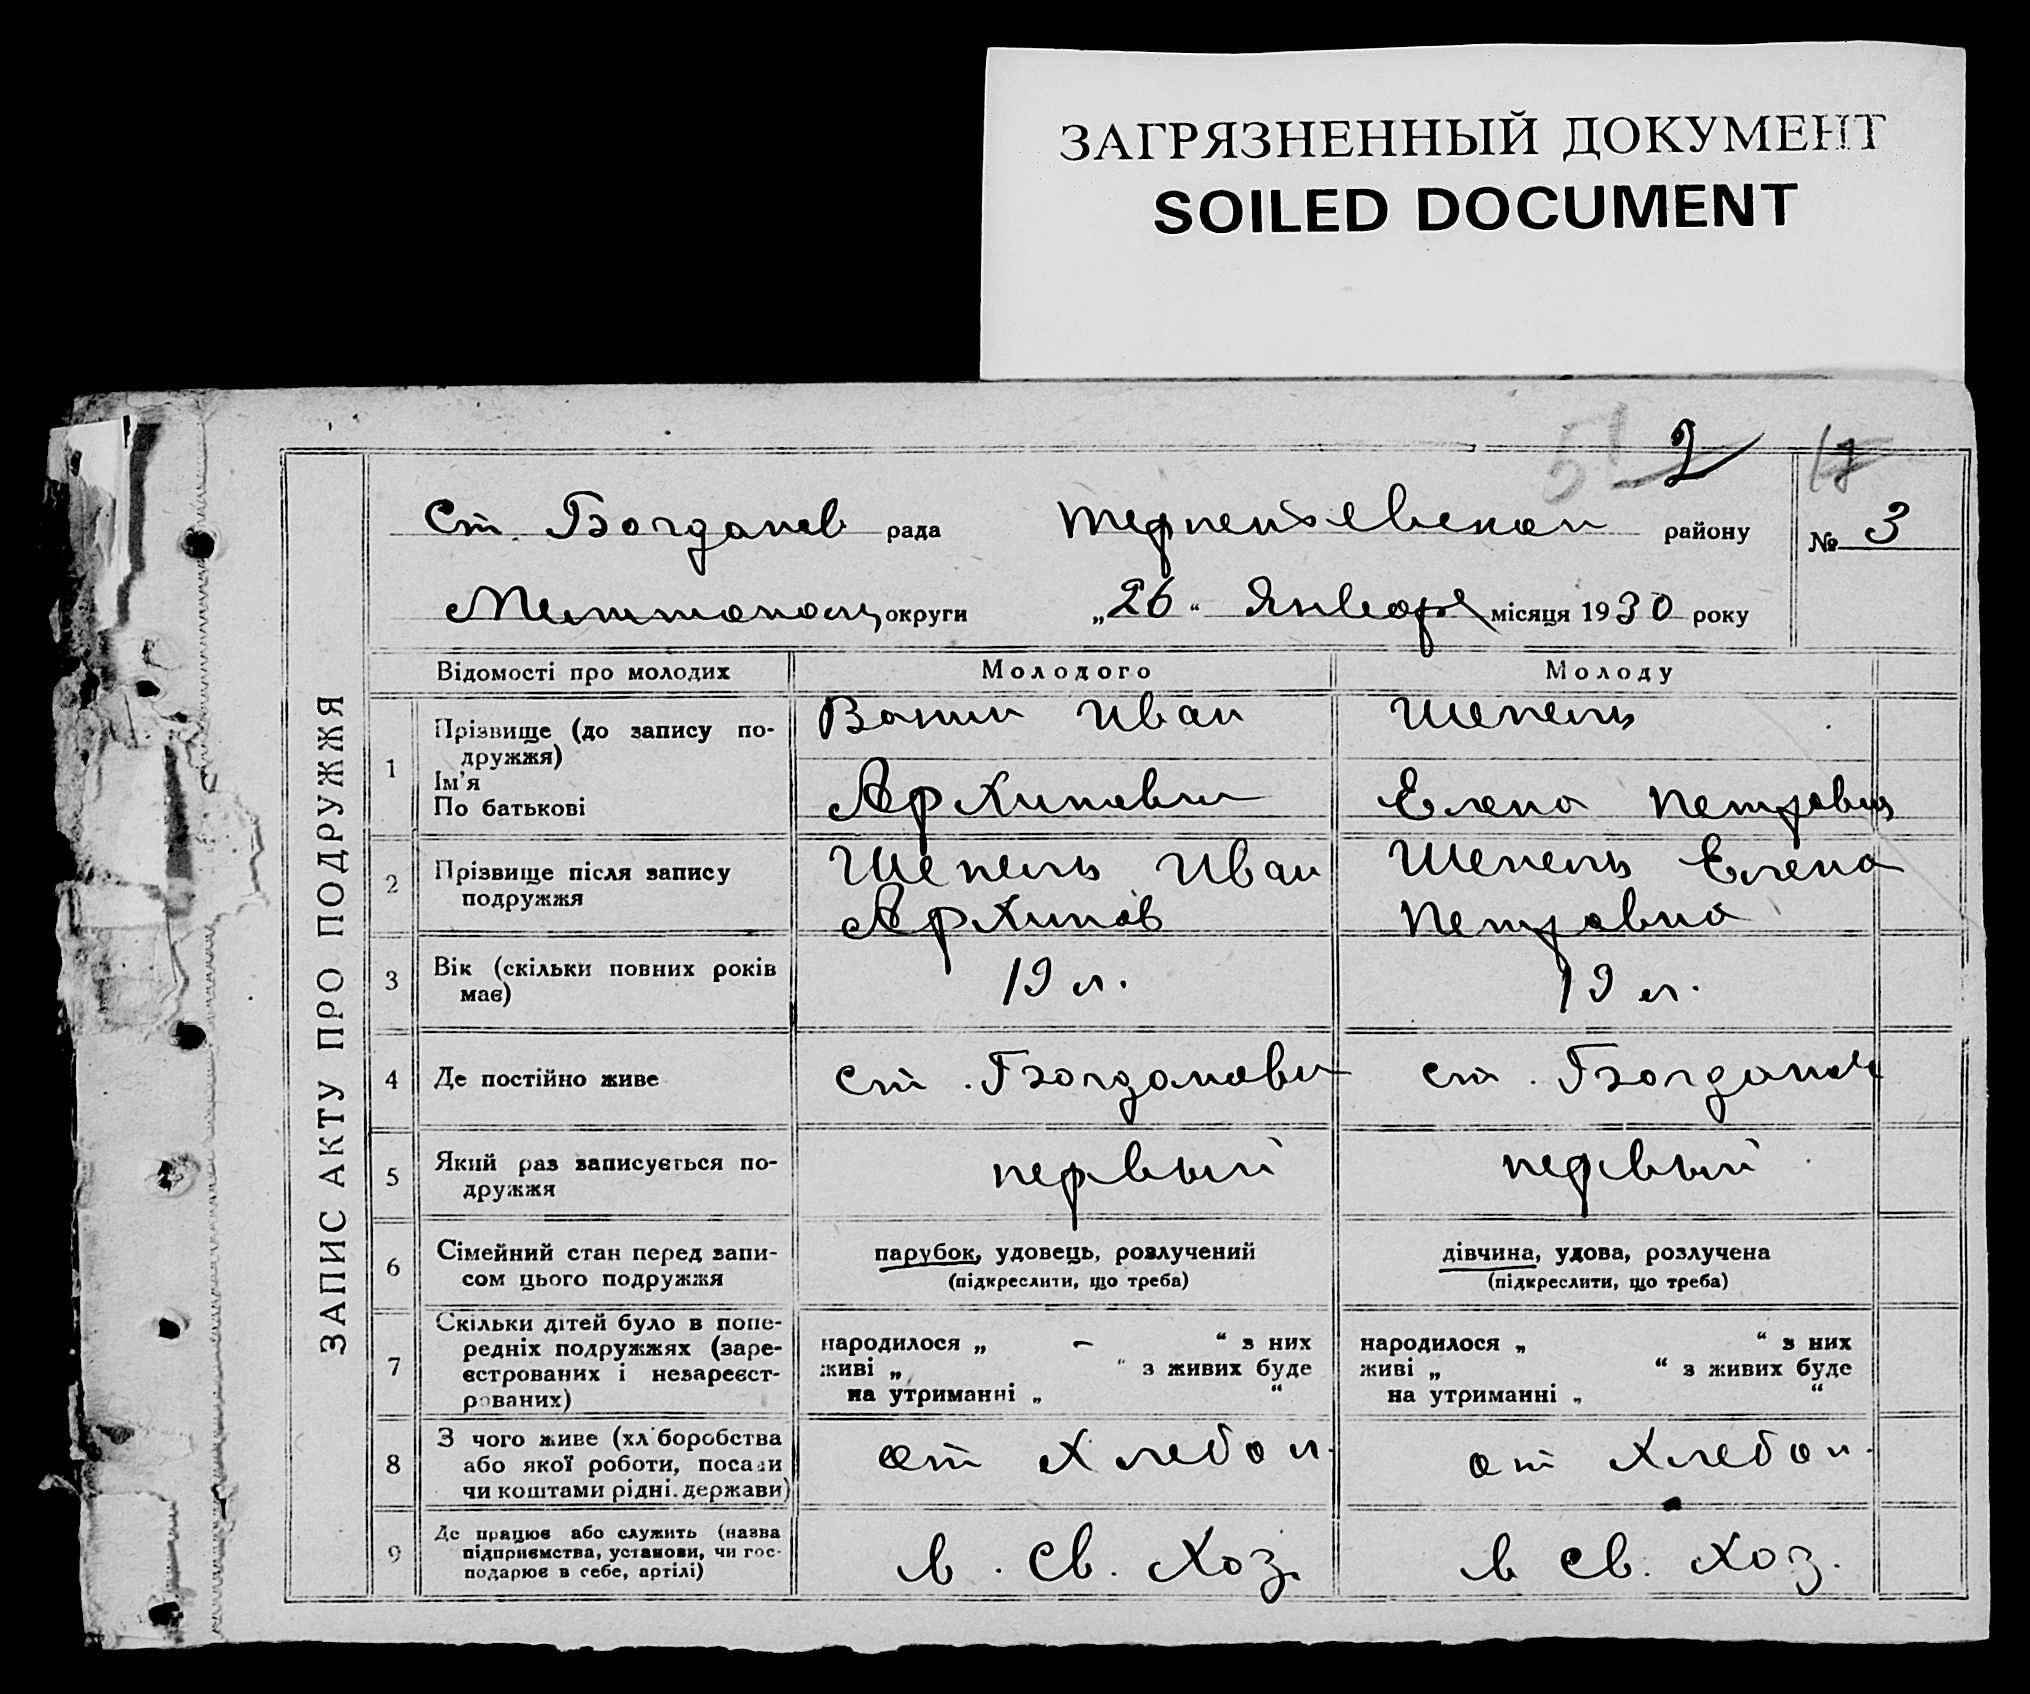 ЗАГРЯЗНЕННЫЙ ДОКУМЕНТ
SOILED DOCUMENT
51 2 18
Ст. Богданов рада Терпеньевской району № 3
Мелитополь округи „26“ Января місяця 1930 року
ЗАПИС АКТУ ПРО ПОДРУЖЖЯ
Відомості про молодих Молодого Молоду
1 Прізвище (до запису по-
дружжя)
Ім'я
По батькові
Ванин Иван
Архипович
Шепель
Елена Петровна
2 Прізвище після запису
подружжя
Шепель Иван
Архипов
Шепель Елена
Петровна
3 Вік (скільки повних років
має)
19 л. 19 л.
4 Де постійно живе ст. Богдановк ст. Богданов
5 Який раз записується по-
дружжя
первый первый
6 Сімейний стан перед запи-
сом цього подружжя
парубок, удовець, розлучений
(підкреслити, що треба)
дівчина, удова, розлучена
(підкреслити, що треба)
7 Скільки дітей було в попе-
редніх подружжях (заре-
єстрованих і незареєст-
рованих)
народилося „ – “ з них
живі „ “ з живих буде
на утриманні „ “
народилося „ “ з них
живі „ “ з живих буде
на утриманні „ “
8 З чого живе (хліборобства
або якої роботи, посади
чи коштами рідні. держави)
от хлебоп. от хлебоп.
9 Де працює або служить (назва
підприємства, установи, чи гос-
подарює в себе, артілі)
в. св. хоз. в св. хоз.